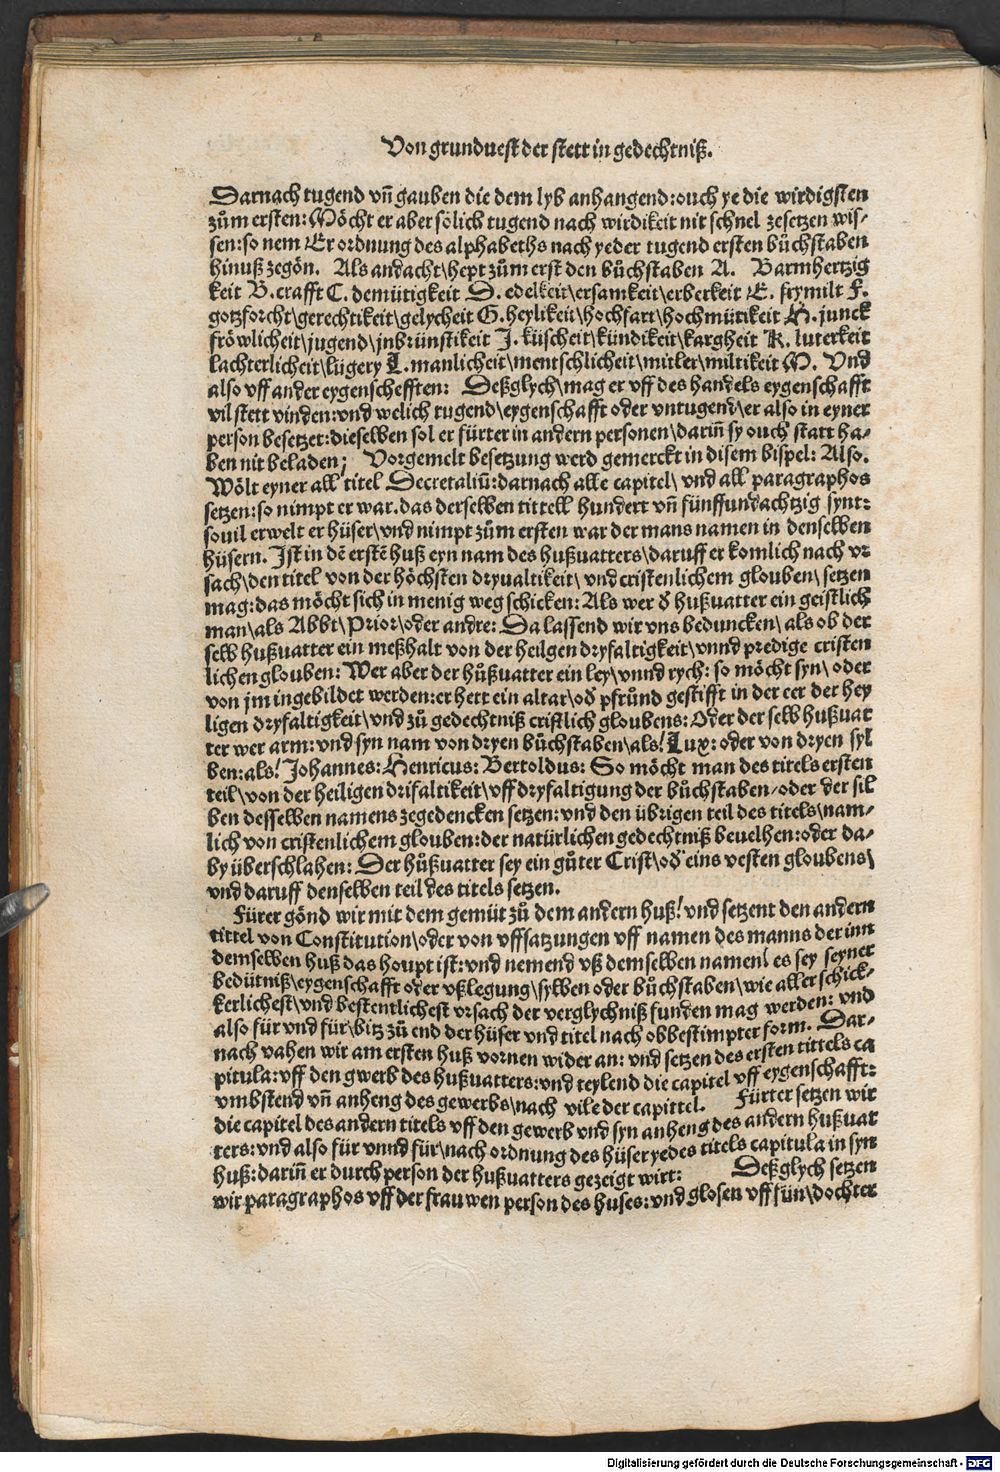 Von grunduest der stett in gedechtniß.
Darnach tugend vñ gauben die dem lyb anhangend: ouch ye die wirdigsten
zům ersten: Möcht er aber sölich tugend nach wirdikeit nit schnel zesetzen wis-
sen: so nem Er ordnung des alphabeths nach yeder tugend ersten bůchstaben
hinuß zegön. Als andacht\ hept zům erst den bůchstaben A. Barmhertzig
keit B. crafft C. demütigkeit D. edelkeit\ ersamkeit\ erberkeit E. frymilt F.
gotzforcht\ gerechtikeit\ gelycheit G. heylikeit\ hochfart\ hochmütikeit H. junck
fröwlicheit\ jugend\ jnbrünstikeit J. küscheit\ kündikeit\ kargheit K. luterkeit
lachterlicheit\ lügery L. manlicheit\ mentschlicheit\ mitler\ miltikeit M. Vnd
also vff ander eygenschefften: Deßglych\ mag er vff des handels eygenschafft
vil stett vinden: vnd welich tugend\ eygenschafft oder vntugend\ er also in eyner
person besetzet: dieselben sol er fürter in andern personen\ dariñ sy ouch statt ha-
ben nit beladen; Vorgemelt besetzung werd gemerckt in disem bispel: Also.
Wölt eyner all titel Decretaliũ: darnach alle capitel\ vnd all paragraphos
setzen: so nimpt er war. das derselben tittell hundert vñ fünffundachtzig synt:
souil erwelt er hüser\ vnd nimpt zům ersten war der mans namen in denselben
hüsern. Ist in dẽ erstẽ huß eyn nam des hußuatters\ daruff er komlich nach vr
sach\ den titel von der höchsten dryualtikeit\ vnd cristenlichem glouben\ setzen
mag: das möcht sich in menig weg schicken: Als wer d̕ hußuatter ein geistlich
man\ als Abbt\ Prior\ oder andre: Da lassend wir vns beduncken\ als ob der
selb hußuatter ein meßhalt von der heilgen dryfaltigkeit\ vnnd predige cristen
lichen glouben: Wer aber der hůßuatter ein ley\ vnnd rych: so möcht syn\ oder
von jm ingebildet werden: er hett ein altar\ od̕ pfrůnd gestifft in der eer der hey
ligen dryfaltigkeit\ vnd zů gedechtniß cristlich gloubens: Oder der selb hußuat
ter wer arm: vnd syn nam von dryen bůchstaben\ als! Lux: oder von dryen syl
ben: als! Johannes: Henricus: Bertoldus: So möcht man des titels ersten
teil\ von der heiligen drifaltikeit\ vff dryfaltigung der bůchstaben/ oder der sil
ben desselben namens zegedencken setzen: vnd den übrigen teil des titels\ nam-
lich von cristenlichem glouben: der natürlichen gedechtniß beuelhen: oder da-
by überschlahen: Der hůßuatter sey ein gůter Crist\ od̕ eins vesten gloubens\
vnd daruff denselben teil des titels setzen.
Fürer gönd wir mit dem gemüt zů dem andern huß! vnd setzent den andern
tittel von Constitution\ oder von vffsatzungen vff namen des manns der inn
demselben huß das houpt ist: vnd nemend vß demselben namen! es sey seyner
bedütniß\ eygenschafft oder vßlegung\ sylben oder bůchstaben\ wie aller schick-
kerlichest\ vnd bestentlichest vrsach der verglychniß funden mag werden: vnd
also für vnd für\ bitz zů end der hüser vnd titel nach obbestimpter form. Dar-
nach vahen wir am ersten huß vornen wider an: vnd setzen des ersten tittels ca
pitula: vff den gwerb des hußuatters: vnd teylend die capitel vff eygenschafft:
vmbstend vñ anheng des gewerbs\ nach vile der capittel. Fürter setzen wir
die capitel des andern titels vff den gewerb vnd syn anheng des andern hußuat
ters: vnd also für vnnd für\ nach ordnung des hüser yedes titels capitula in syn
huß: dariñ er durch person der hußuatters gezeigt wirt: Deßglych setzen
wir paragraphos vff der frauwen person des huses: vnd glosen vff sün\ dochter
Digitalisierung gefördert durch die Deutsche Forschungsgemeinschaft - DFG